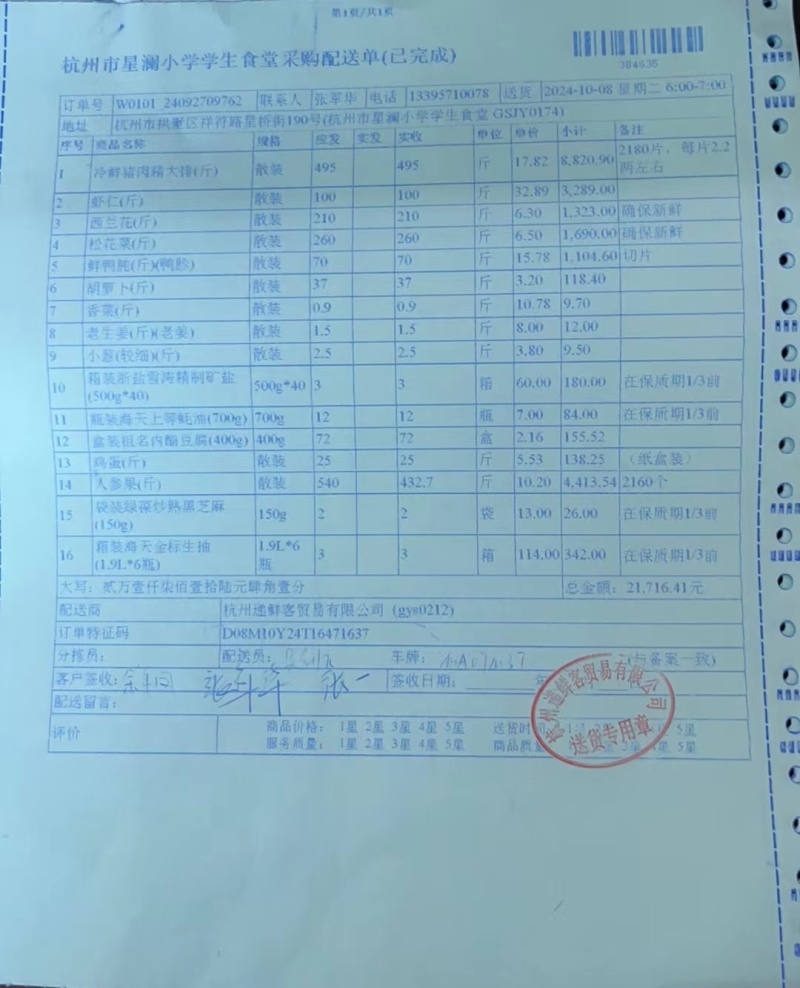 第1页/共1页
杭州市星澜小学学生食堂采购配送单(已完成)
384635
订单号 W0101_24092709762 联系人 张军华 电话 13395710078 送货 2024-10-08 星期二 6:00-7:00
地址 杭州市拱墅区祥符路星桥街190号(杭州市星澜小学学生食堂 GSJY0174)
序号 商品名称 规格 应发 实发 实收 单位 单价 小计 备注
1 冷鲜猪肉精大排(斤) 散装 495 495 斤 17.82 8,820.90 2180片，每片2.2两左右
2 虾仁(斤) 散装 100 100 斤 32.89 3,289.00
3 西兰花(斤) 散装 210 210 斤 6.30 1,323.00 确保新鲜
4 松花菜(斤) 散装 260 260 斤 6.50 1,690.00 确保新鲜
5 鲜鸭肫(斤)(鸭胗) 散装 70 70 斤 15.78 1,104.60 切片
6 胡萝卜(斤) 散装 37 37 斤 3.20 118.40
7 香菜(斤) 散装 0.9 0.9 斤 10.78 9.70
8 老生姜(斤)(老姜) 散装 1.5 1.5 斤 8.00 12.00
9 小葱(较细)(斤) 散装 2.5 2.5 斤 3.80 9.50
10 箱装浙盐雪涛精制矿盐(500g*40) 500g*40 3 3 箱 60.00 180.00 在保质期1/3前
11 瓶装海天上等蚝油(700g) 700g 12 12 瓶 7.00 84.00 在保质期1/3前
12 盒装祖名内酯豆腐(400g) 400g 72 72 盒 2.16 155.52
13 鸡蛋(斤) 散装 25 25 斤 5.53 138.25 （纸盒装）
14 人参果(斤) 散装 540 432.7 斤 10.20 4,413.54 2160个
15 袋装绿葆炒熟黑芝麻(150g) 150g 2 2 袋 13.00 26.00 在保质期1/3前
16 箱装海天金标生抽(1.9L*6瓶) 1.9L*6瓶 3 3 箱 114.00 342.00 在保质期1/3前
大写：贰万壹仟柒佰壹拾陆元肆角壹分 总金额：21,716.41元
配送商 杭州递鲜客贸易有限公司 (gys0212)
订单特征码 D08M10Y24T16471637
分拣员： 配送员： 车牌： (与备案一致)
客户签收： 张军华 张一 签收日期： 年
配送留言：
评价 商品价格： 1星 2星 3星 4星 5星 送货时间 星 5星
服务质量： 1星 2星 3星 4星 5星 商品质量 3星 4星 5星
杭州递鲜客贸易有限公司
送货专用章